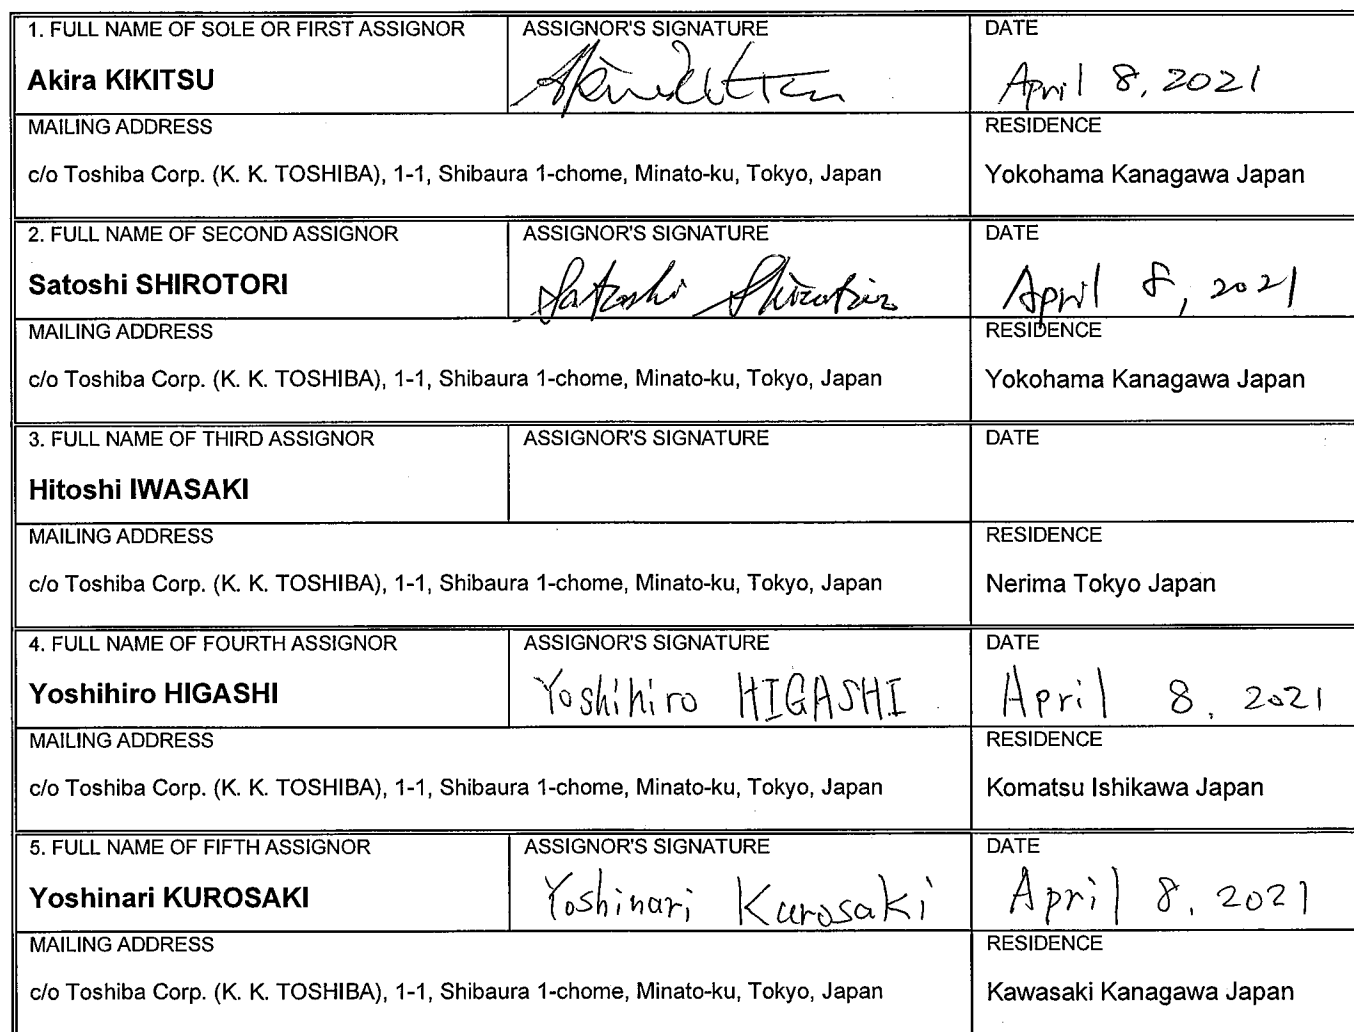 1. FULL NAME OF SOLE OR FIRST ASSIGNOR
Akira KIKITSU
ASSIGNOR'S SIGNATURE
DATE
April 8, 2021
MAILING ADDRESS
c/o Toshiba Corp. (K. K. TOSHIBA), 1-1, Shibaura 1-chome, Minato-ku, Tokyo, Japan
RESIDENCE
Yokohama Kanagawa Japan
2. FULL NAME OF SECOND ASSIGNOR
Satoshi SHIROTORI
ASSIGNOR'S SIGNATURE
Satoshi Shirotori
DATE
April 8, 2021
MAILING ADDRESS
c/o Toshiba Corp. (K. K. TOSHIBA), 1-1, Shibaura 1-chome, Minato-ku, Tokyo, Japan
RESIDENCE
Yokohama Kanagawa Japan
3. FULL NAME OF THIRD ASSIGNOR
Hitoshi IWASAKI
ASSIGNOR'S SIGNATURE
DATE
MAILING ADDRESS
c/o Toshiba Corp. (K. K. TOSHIBA), 1-1, Shibaura 1-chome, Minato-ku, Tokyo, Japan
RESIDENCE
Nerima Tokyo Japan
4. FULL NAME OF FOURTH ASSIGNOR
Yoshihiro HIGASHI
ASSIGNOR'S SIGNATURE
Yoshihiro HIGASHI
DATE
April 8, 2021
MAILING ADDRESS
c/o Toshiba Corp. (K. K. TOSHIBA), 1-1, Shibaura 1-chome, Minato-ku, Tokyo, Japan
RESIDENCE
Komatsu Ishikawa Japan
5. FULL NAME OF FIFTH ASSIGNOR
Yoshinari KUROSAKI
ASSIGNOR'S SIGNATURE
Yoshinari Kurosaki
DATE
April 8, 2021
MAILING ADDRESS
c/o Toshiba Corp. (K. K. TOSHIBA), 1-1, Shibaura 1-chome, Minato-ku, Tokyo, Japan
RESIDENCE
Kawasaki Kanagawa Japan